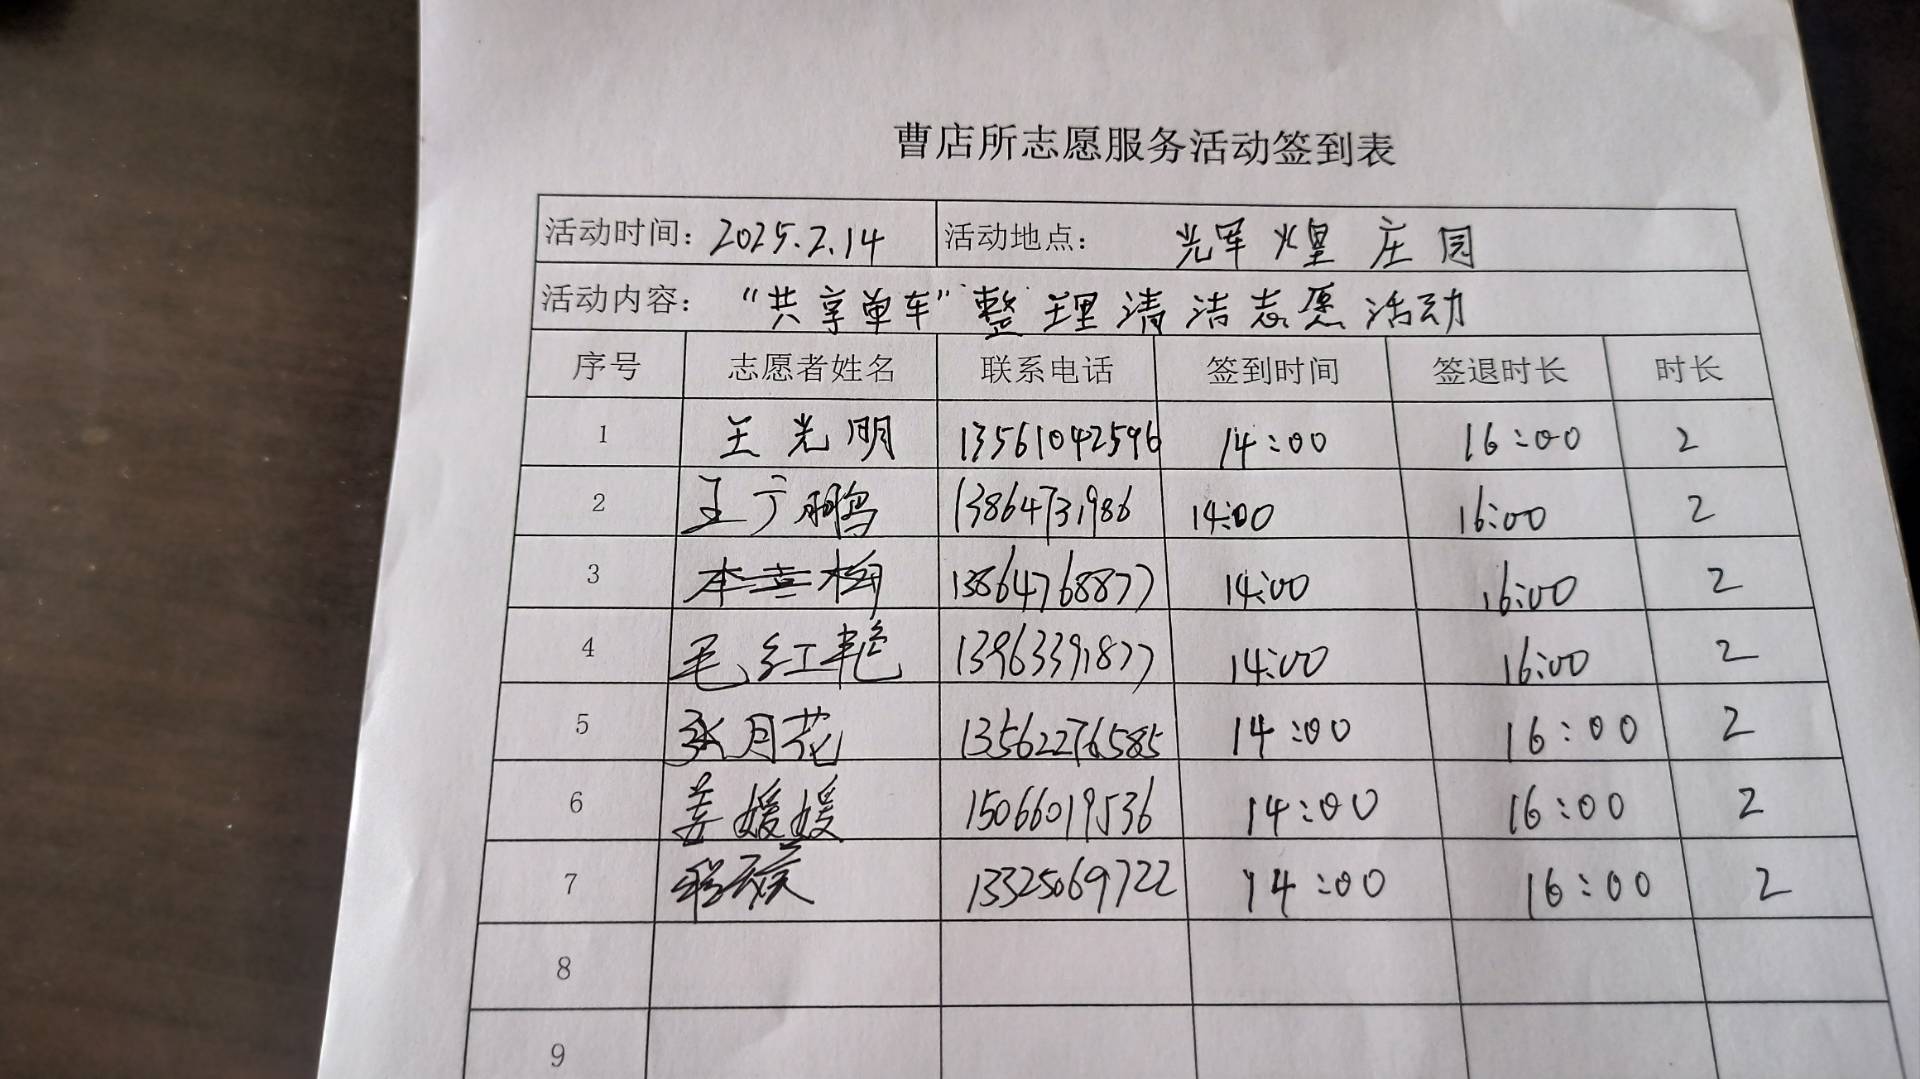 曹店所志愿服务活动签到表
活动时间：2025.2.14 活动地点：光军煌庄园
活动内容："共享单车"整理清洁志愿活动
序号 志愿者姓名 联系电话 签到时间 签退时长 时长
1 王光明 13561042596 14:00 16:00 2
2 王广鹏 13864731986 14:00 16:00 2
3 13864768877 14:00 16:00 2
4 毛红艳 13963391877 14:00 16:00 2
5 张月花 13562276585 14:00 16:00 2
6 姜媛媛 15066019536 14:00 16:00 2
7 13325069722 14:00 16:00 2
8
9